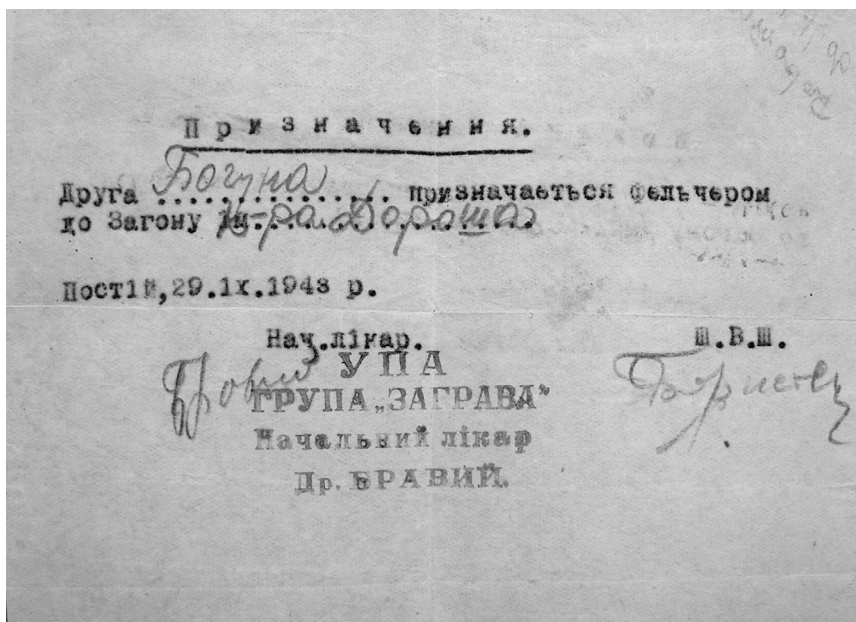 Призначення.
Друга Богуна призначається фельчером
до Загону К-ра Дороша
Постій, 29.ІХ.1943 р.
Нач.лікар. Ш.В.Ш.
УПА
ГРУПА „ЗАГРАВА"
Начальний лікар
Др. БРАВИЙ.